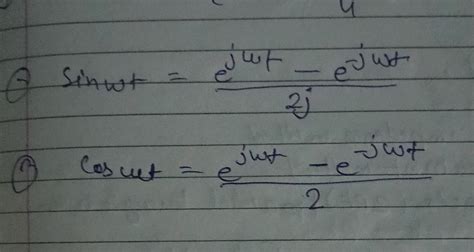 sinωt = e^{jωt} - e^{-jωt} / 2j
cosωt = e^{jωt} - e^{-jωt} / 2